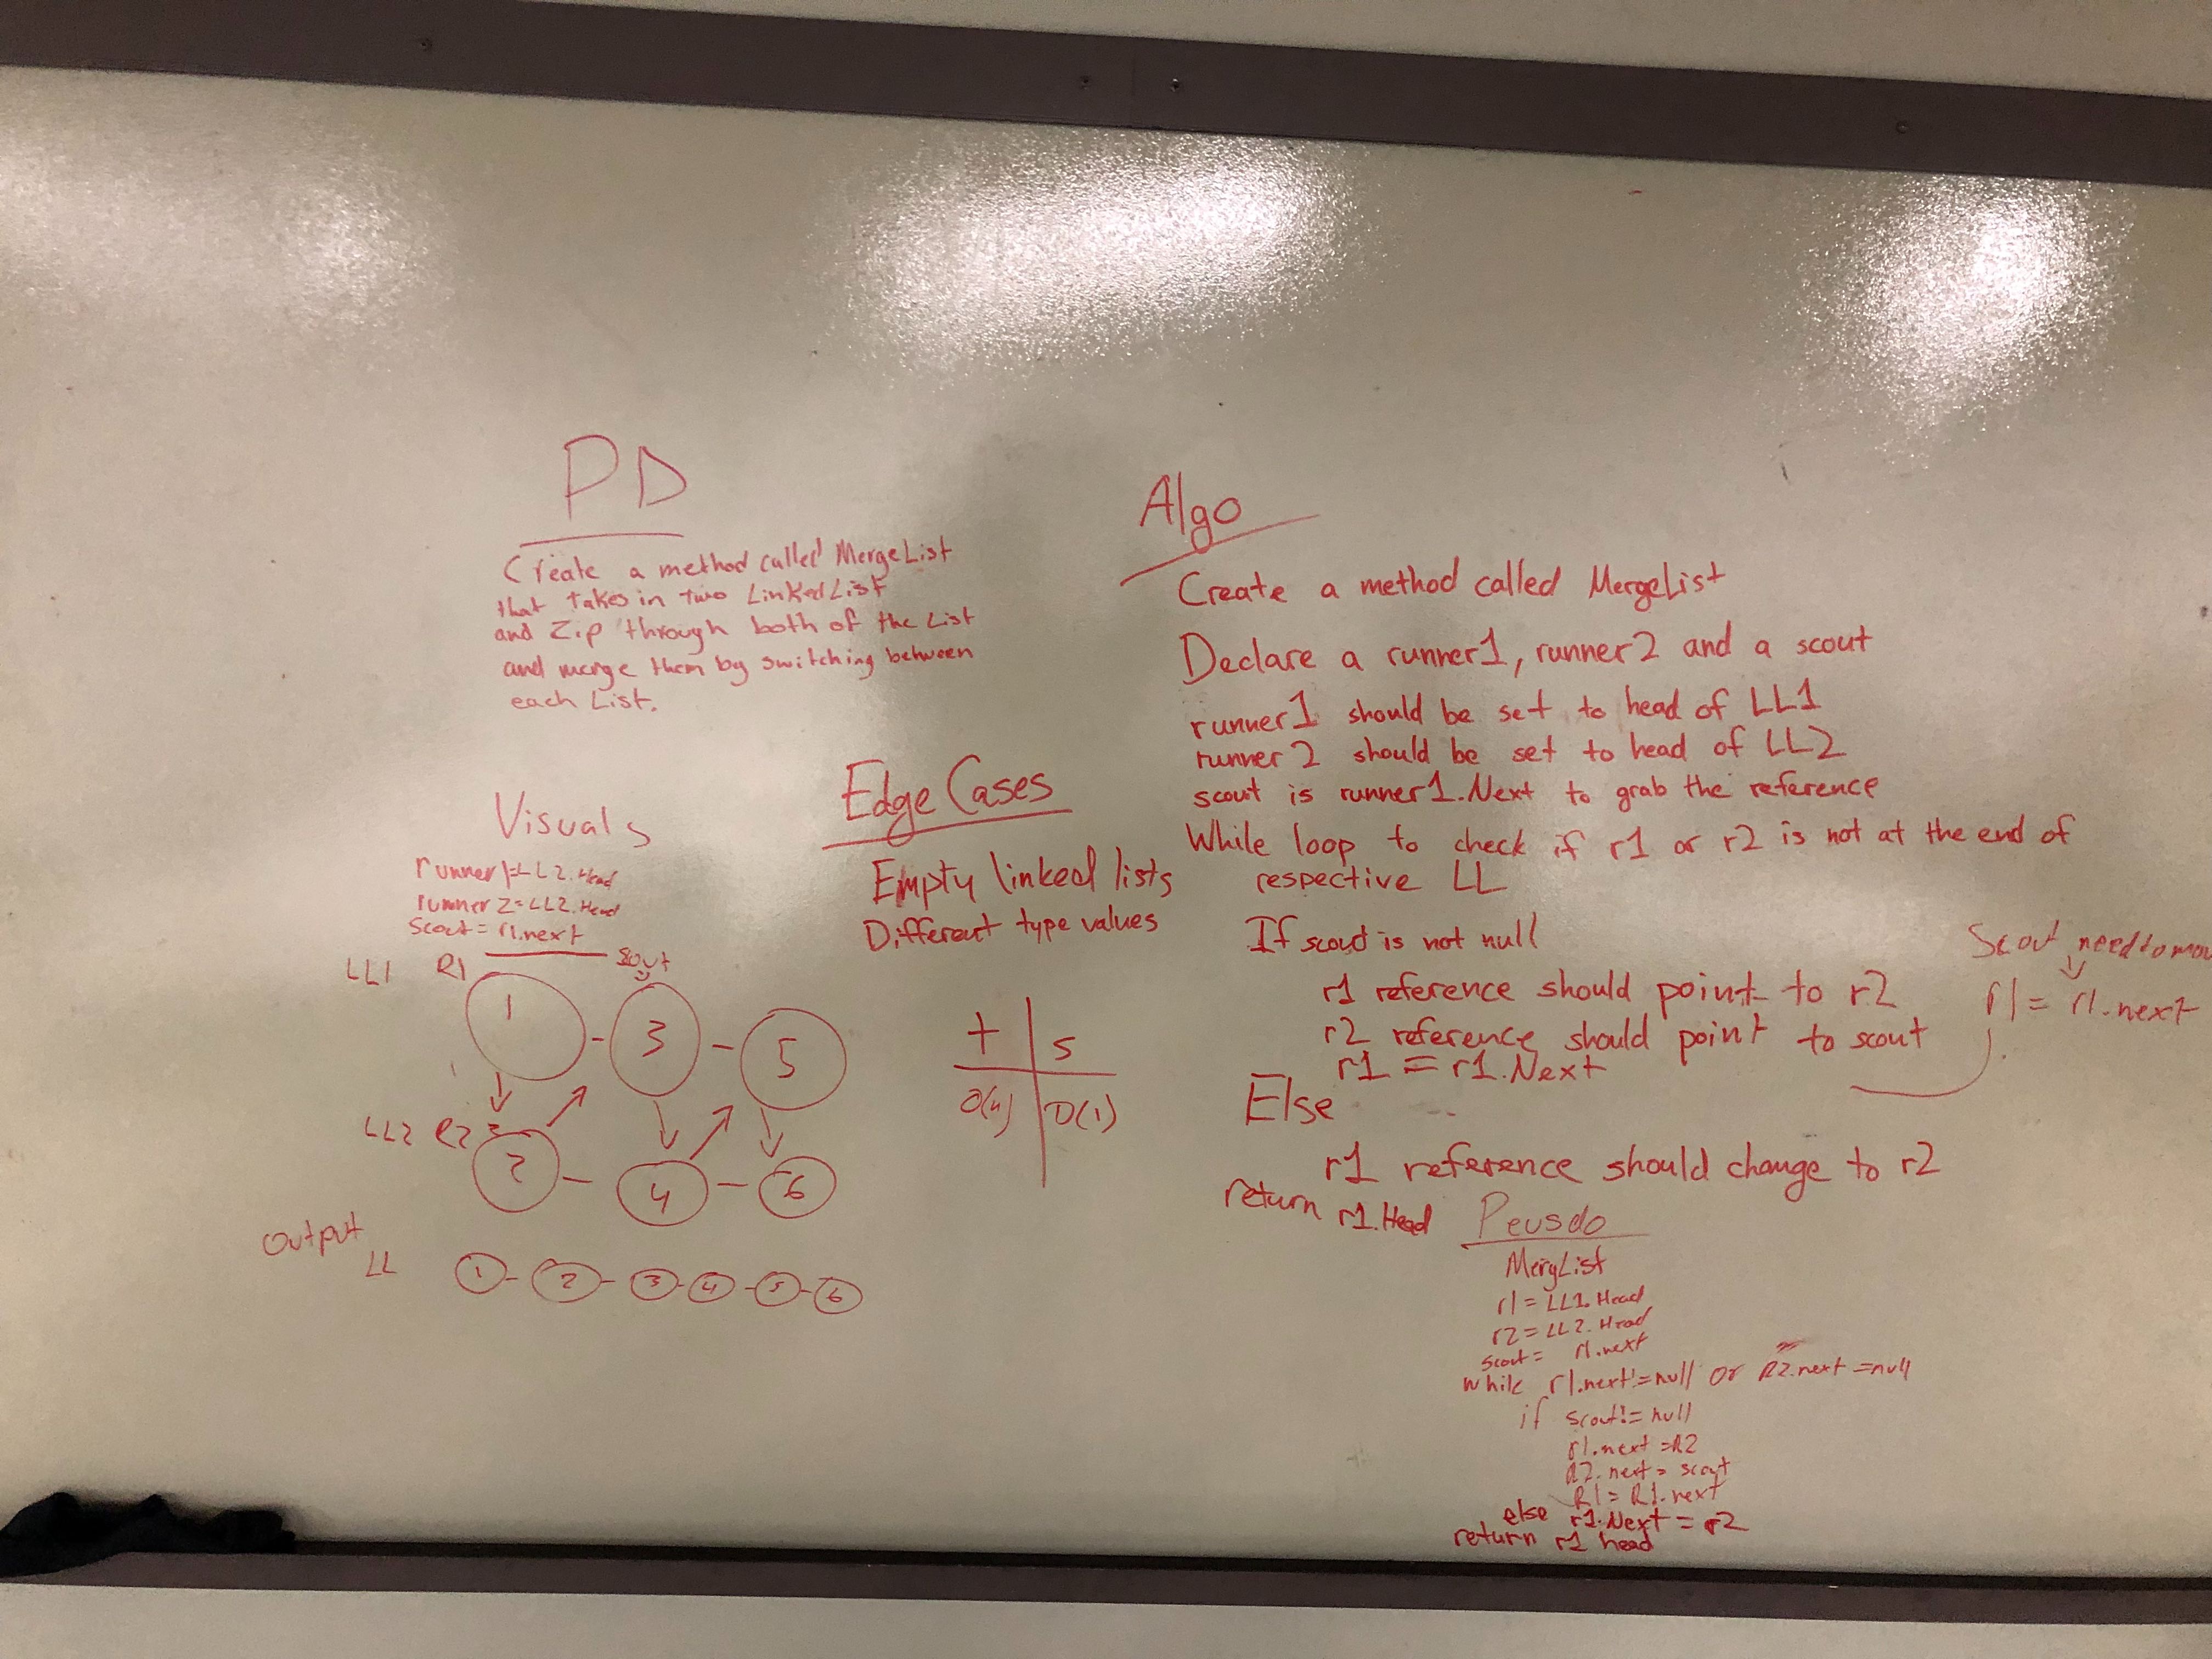 PD
Create a method called MergeList
that takes in two LinkedList
and Zip through both of the List
and merge them by switching between
each List.
Visuals
runner1=LL2.Head
runner2=LL2.Head
Scout = r1.next
LL1 R1 Scout
1 - 3 - 5
LL2 R2
2 - 4 - 6
Output
LL
1 - 2 - 3 - 4 - 5 - 6
Edge Cases
Empty linked lists
Different type values
t s
O(n) O(1)
Algo
Create a method called MergeList
Declare a runner1, runner2 and a scout
runner1 should be set to head of LL1
runner2 should be set to head of LL2
scout is runner1.Next to grab the reference
While loop to check if r1 or r2 is not at the end of
respective LL
If scout is not null
r1 reference should point to r2
r2 reference should point to scout
r1 = r1.Next
Else
r1 reference should change to r2
return r1.Head
Scout need to mov
r1 = r1.next
Peusdo
MergList
r1 = LL1.Head
r2 = LL2.Head
scout = r1.next
while r1.next != null or R2.next = null
if scout != null
r1.next = R2
R2.next = scout
R1 = R1.next
else r1.Next = r2
return r1 head